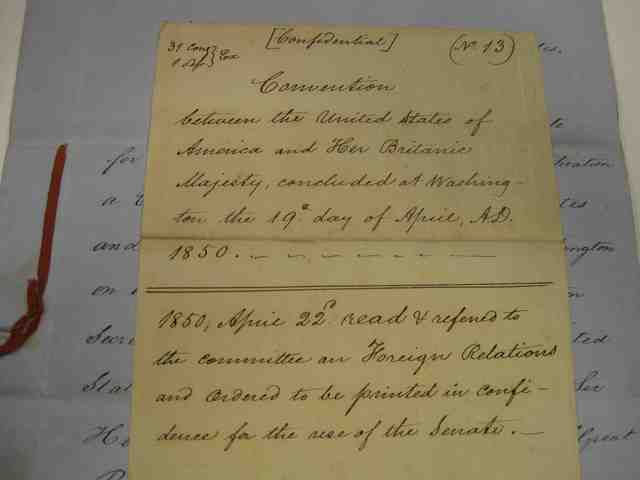 [Confidential]
(No. 13)
31 Cong
1 Sess } Ex
Convention
between the United States of
America and Her Britanic
Majesty, concluded at Washing-
ton the 19th day of April, A.D.
1850.
1850, April 22d. read & referred to
the committee on Foreign Relations
and ordered to be printed in confi-
dence for the use of the Senate.
for
a
and
on
Secre
Stat